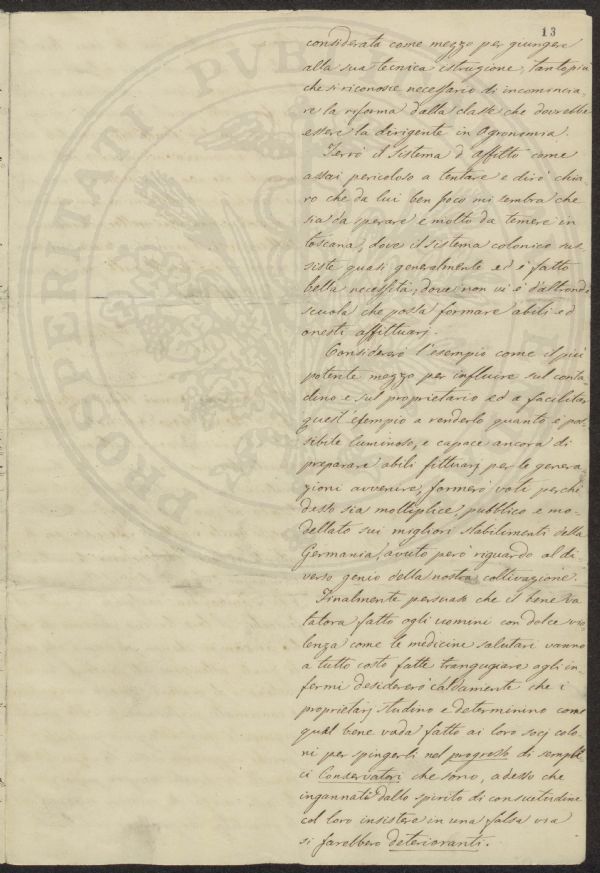 13
considerata come mezzo per giungere
alla sua tecnica istruzione, tantopiù
che si riconosce necessario di incomincia,
re la riforma dalla classe che dovrebbe
essere la dirigente in Agronomia.
Terrò il sistema d'affitto come
assai pericoloso a tentare e dirò chia
ro che da lui ben poco mi sembra che
sia da sperare e molto da temere in
toscana, dove il sistema colonico sus,
siste quasi generalmente ed è fatto
bella necessità, dove non vi è d'altronde
scuola che possa formare abili ed
onesti affittuarj.
Considererò l'esempio come il più
potente mezzo per influire sul conta
dino e sul proprietario ed a facilitar
quest'esempio a renderlo quanto è pos,
sibile luminoso, e capace ancora di
preparare abili fittuarj per le genera
zioni avvenire, formerò voti perchè
desso sia moltiplice, pubblico e mo-
dellato sui migliori stabilimenti della
Germania, avuto però riguardo al di
verso genio della nostra coltivazione.
Finalmente persuaso che il bene va
talora fatto agli uomini con dolce vio
lenza come le medicine salutari vanno
a tutto costo fatte trangugiare agli in-
fermi desidererò caldamente che i
proprietarj studino e determinino come
qual bene vada fatto ai loro socj colo,
ni per spingerli nel progresso di sempli
ci Conservatori che sono, adesso che
ingannati dallo spirito di consuetudine
col loro insistere in una falsa via
si farebbero deterioranti.
PROSPERITATI PUBL